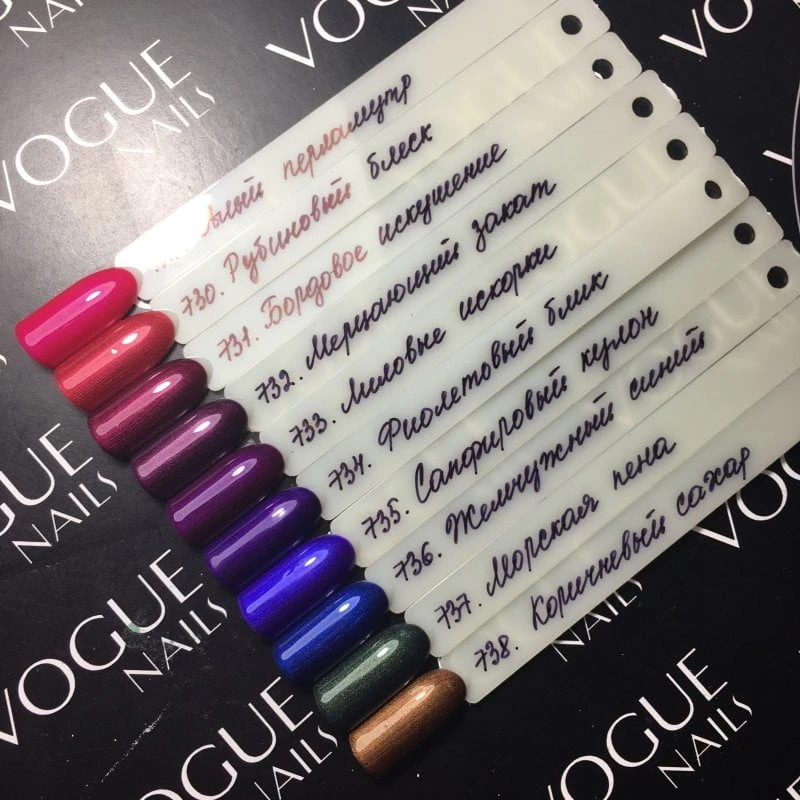 VOGUE
NAILS
VOGUE
VOGUE
NAILS
Алый перламутр
730. Рубиновый блеск
731. Бордовое искушение
732. Мерцающий закат
733. Лиловые искорки
734. Фиолетовый блик
735. Сапфировый кулон
736. Жемчужный синий
737. Морская пена
738. Коричневый сахар
VOGUE
NAILS
VOGUE
NAILS
VOGUE
NAILS
VOGUE
NAILS
VOGUE
NAILS